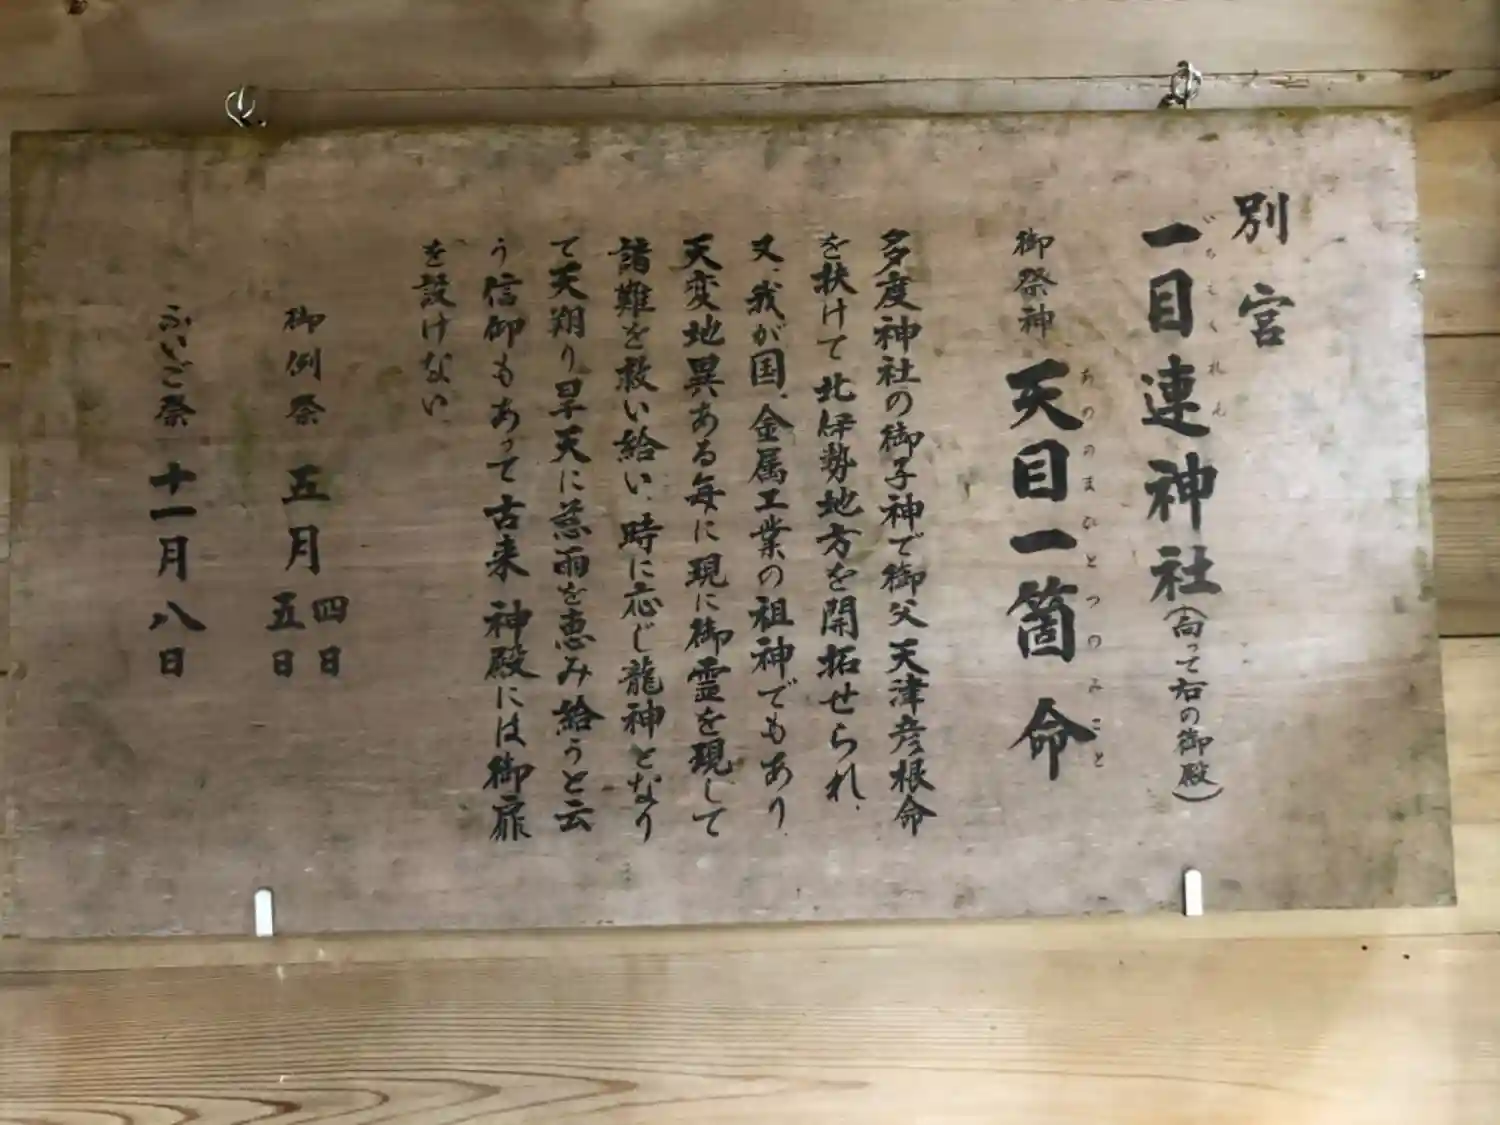 別宮
一目連神社(向って右の御殿)
いちもくれん
御祭神 天目一箇命
あめのまひとつのみこと
多度神社の御子神で御父天津彦根命
を扶けて北伊勢地方を開拓せられ、
又、我が国、金属工業の祖神でもあり
天変地異ある毎に現に御霊を現して
諸難を救い給い、時に応じ龍神となり
て天翔り旱天に慈雨を恵み給うと云
う信仰もあって古来神殿には御扉
を設けない、
御例祭 五月 四日 五日
ふいご祭 十一月八日